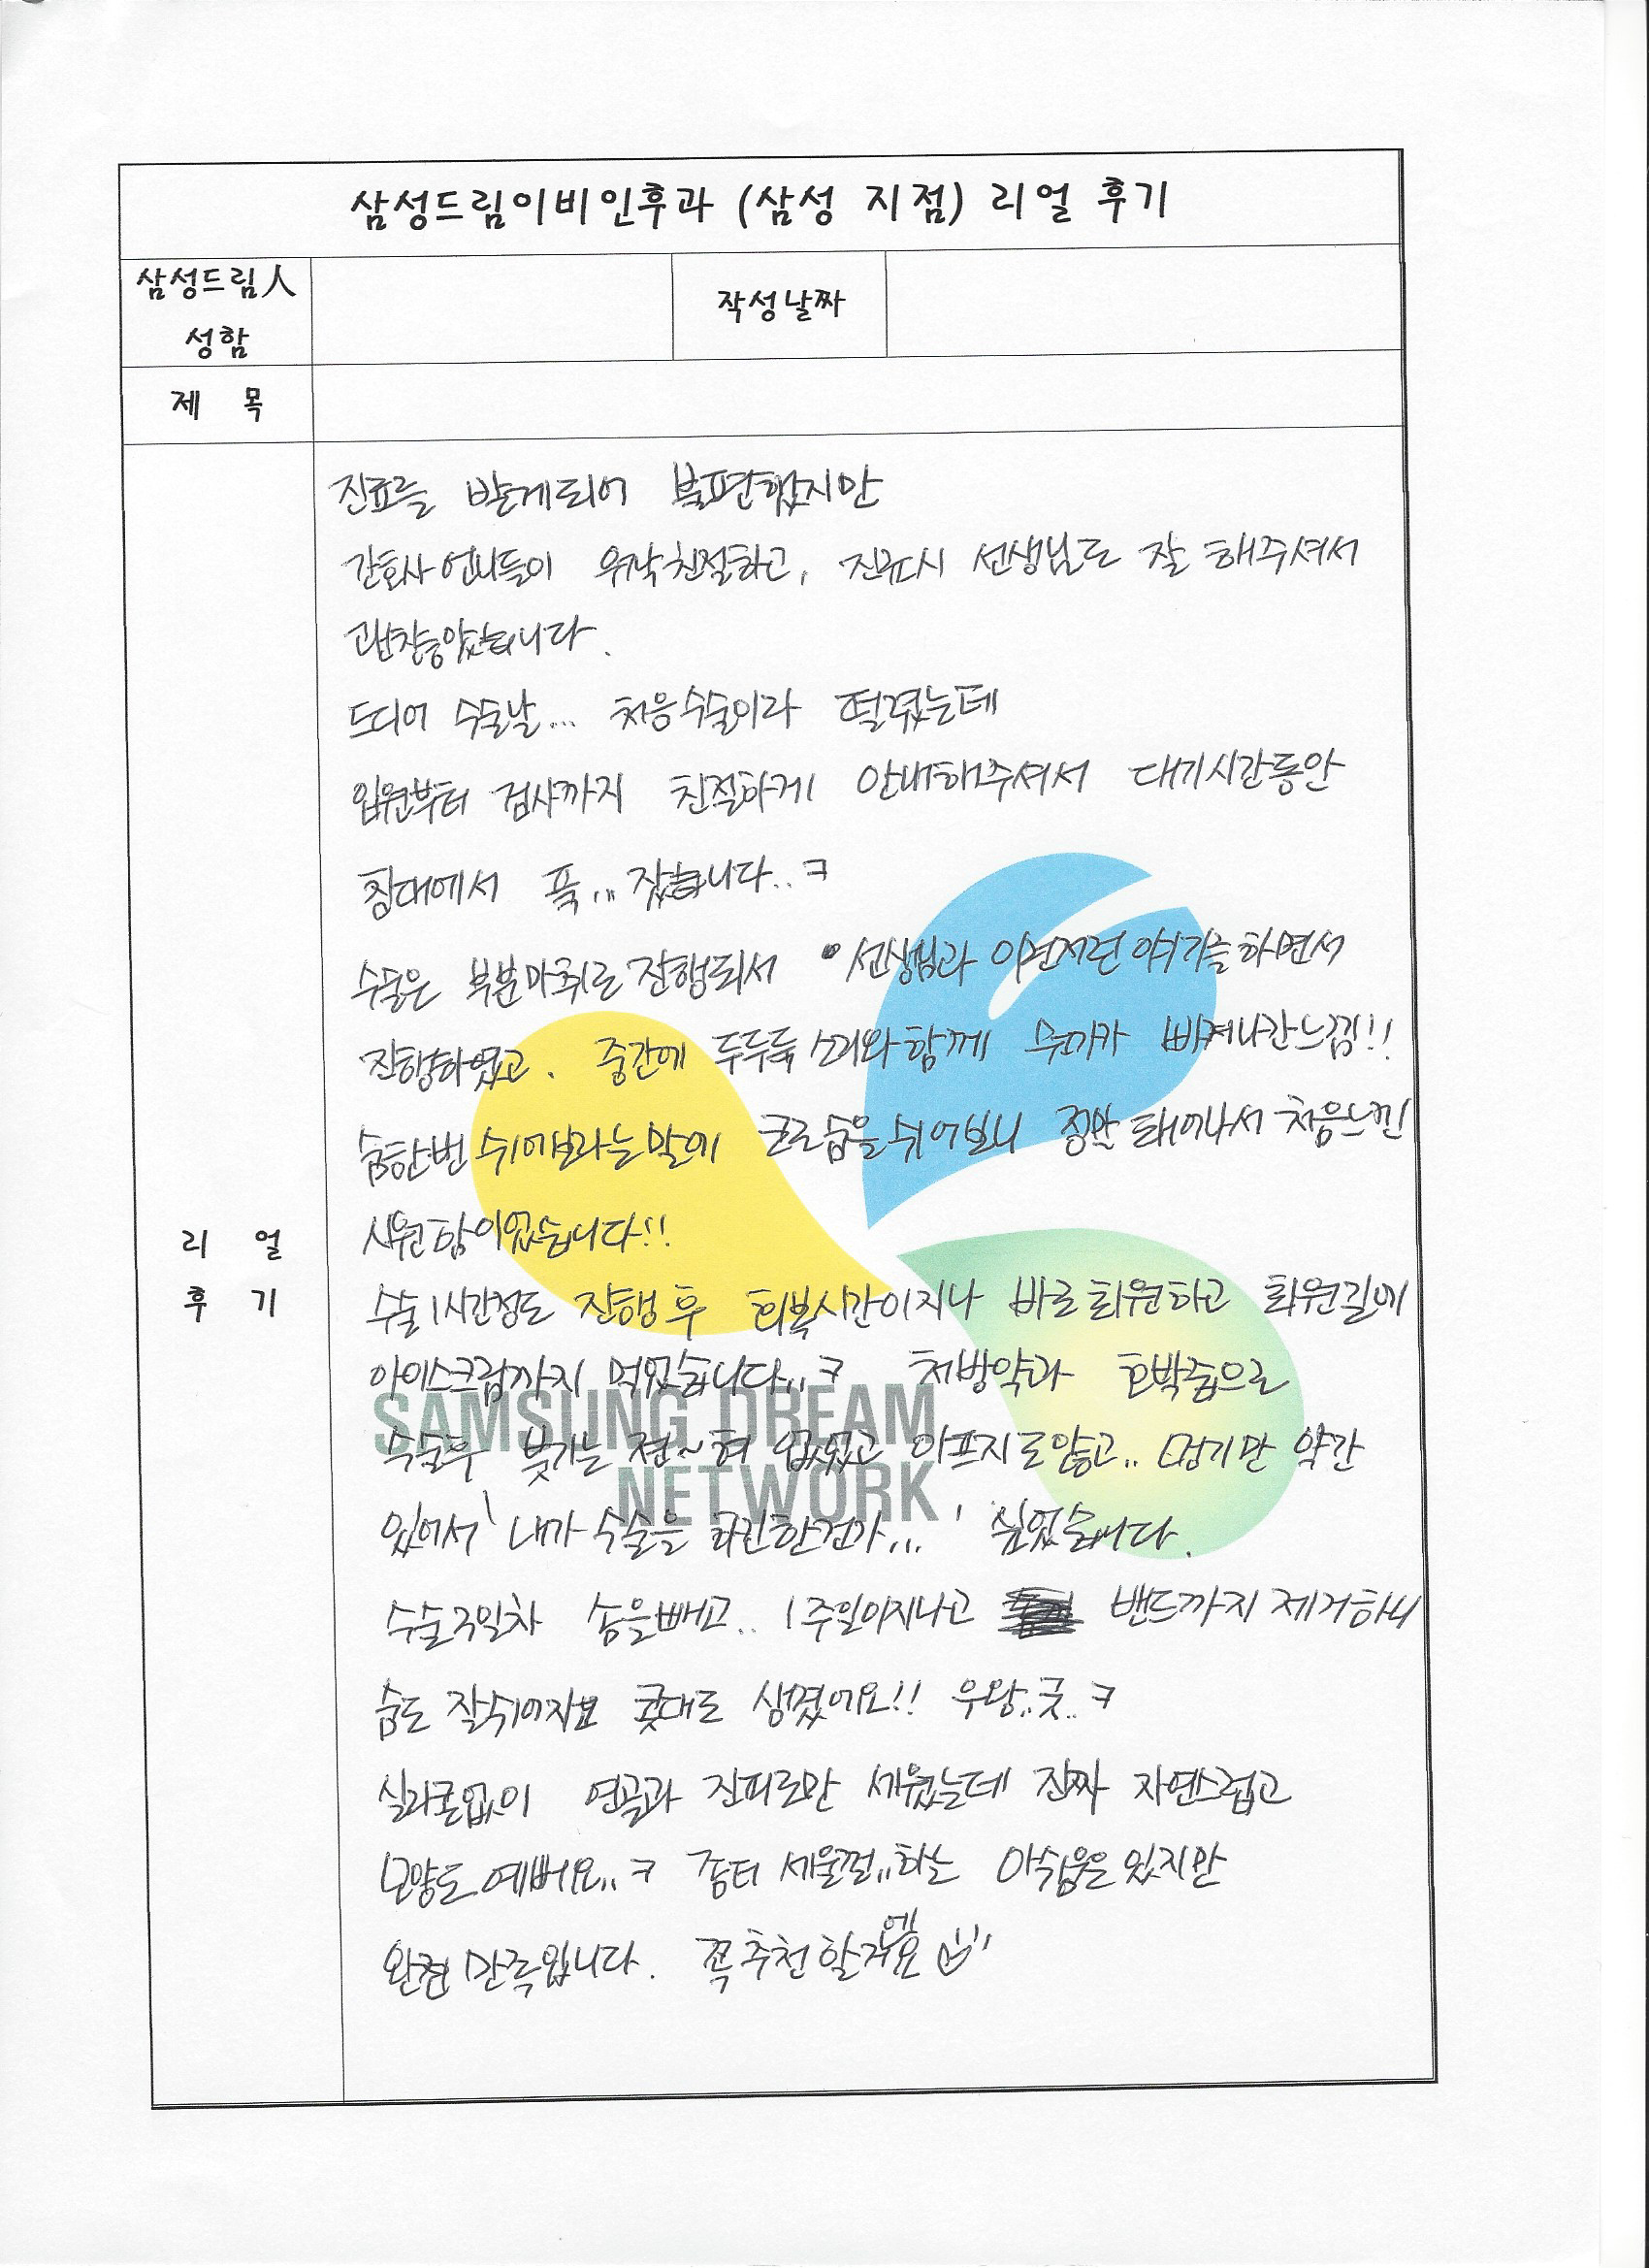 삼성드림이비인후과 (삼성 지점) 리얼 후기
삼성드림人
성함
작성날짜
제 목
리 얼
후 기
진료를 받게되어 불편했지만
간호사 언니들이 워낙친절하고, 진료시 선생님도 잘 해주셔서
괜찮았습니다.
드디어 수술날... 처음수술이라 떨렸는데
입원부터 검사까지 친절하게 안내해주셔서 대기시간동안
침대에서 푹... 잤습니다..ㅋ
수술은 부분마취로 진행되서 선생님과 이런저런 얘기를하면서
진행하였고. 중간에 두두둑 소리와함께 뭔가가 빠져나간느낌!!
숨한번 쉬어보라는말에 코로숨을쉬어보니 정말 태어나서 처음느낀
시원함이었습니다!!
수술1시간정도 진행 후 회복시간이지나 바로 퇴원하고 퇴원길에
아이스크림까지 먹었습니다..ㅋ 처방약과 호박즙으로
수술후 붓기는 전~혀 없었고 아프지도않고.. 멍기만 약간
있어서 '내가 수술을 하긴한건가...' 싶었습니다.
수술3일차 솜을빼고.. 1주일이지나고 밴드까지 제거하니
숨도 잘쉬어지고 콧대도 생겼어요!! 우왕..굿..ㅋ
실리콘없이 연골과 진피로만 세웠는데 진짜 자연스럽고
모양도 예뻐요..ㅋ 좀더 세울껄..하는 아쉬움은있지만
완전 만족입니다. 꼭추천할거에요
SAMSUNG DREAM
NETWORK